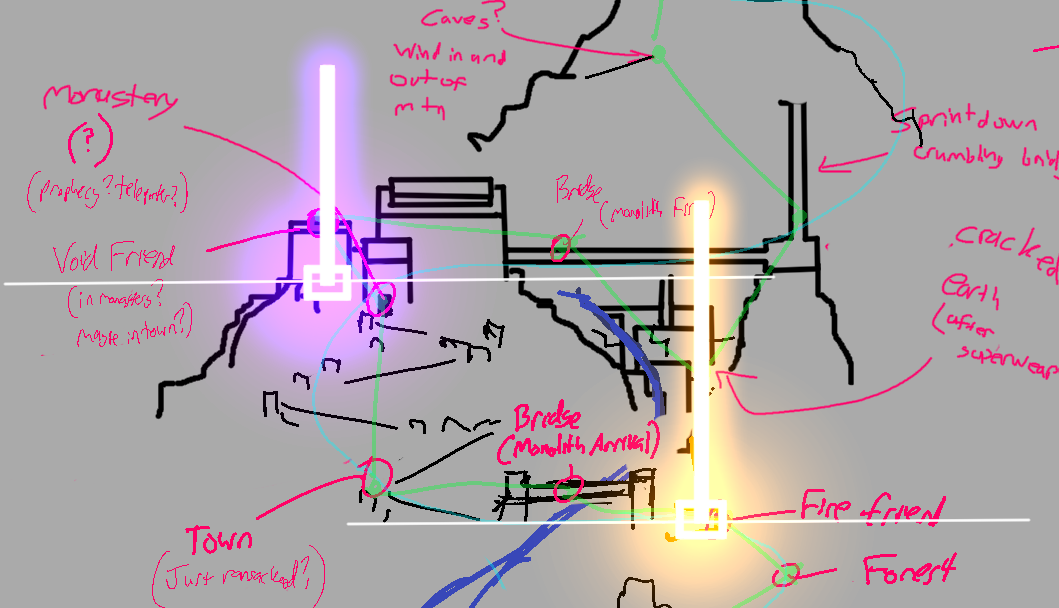 Caves?
Wind in and
out of
mtn
Monastery
(?)
(prophecy? teleporter?)
Void Friend
(in monastery?
maybe in town?)
Bridge
(monolith Fire)
Sprint down
crumbling
cracked
earth
(after
Bridge
(Monolith Arrival)
Town
(Just ransacked?)
Fire friend
Forest